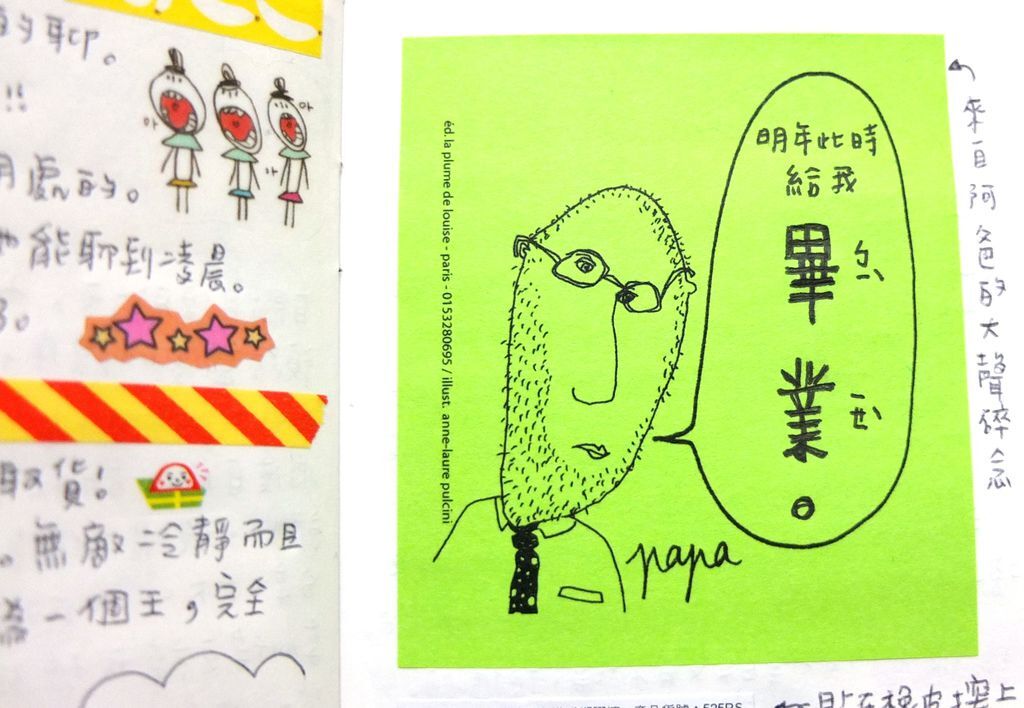 的聊。
!!
處的。
能聊到凌晨。
아
아
아
아
取貨!
。無敵冷靜而且
一個王，完全
éd. la plume de louise - paris - 0153280695 / illust. anne-laure pulcini
明年此時
給我
畢
業
。
papa
來自阿爸的大聲碎念